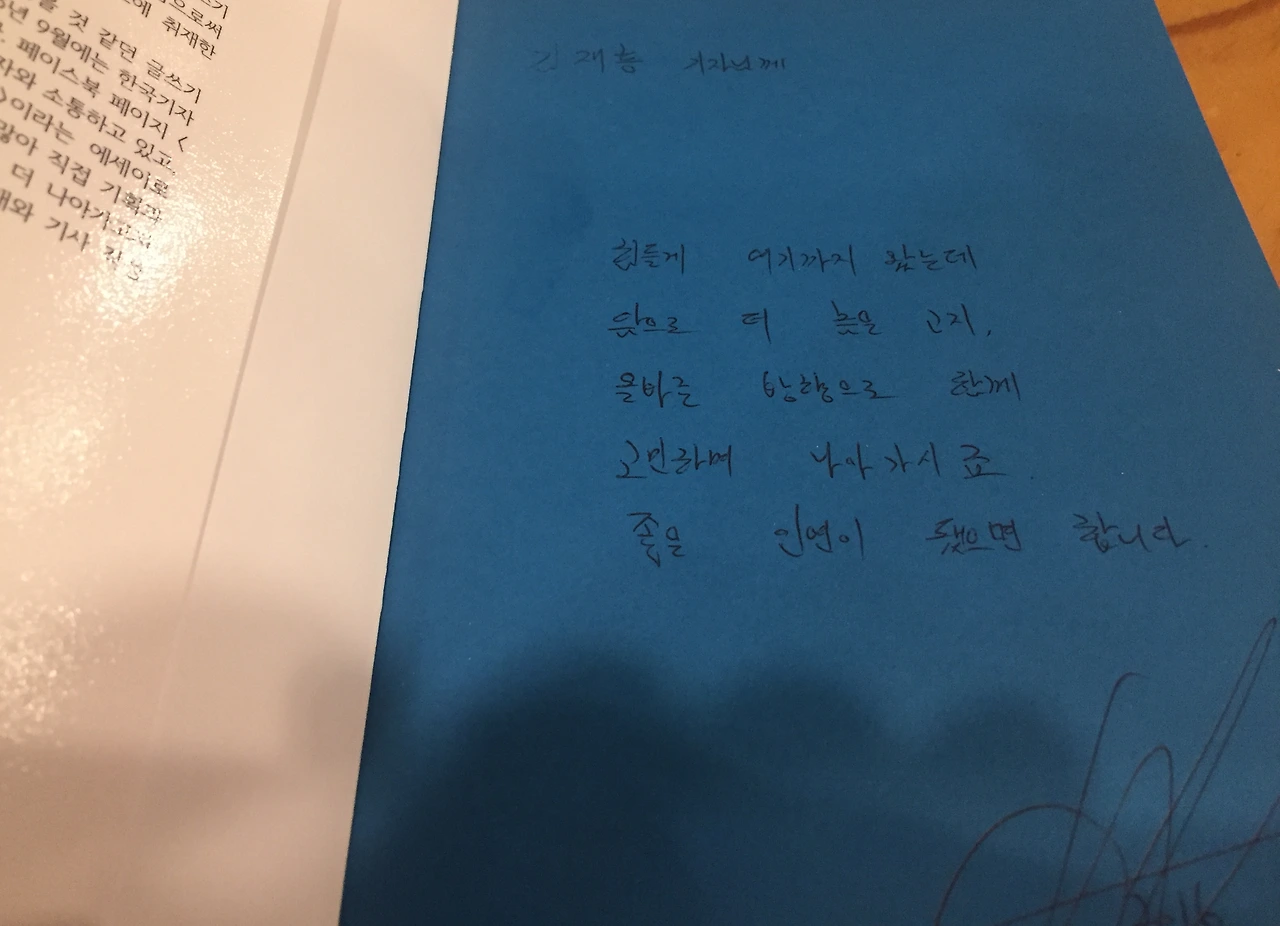 쓰기
으로써
에 취재한
을 것 같던 글쓰기
년 9월에는 한국기자
페이스북 페이지 <
자와 소통하고 있고,
>이라는 에세이로
많아 직접 기획과
더 나아가고자
기사 작성
김재흥 기자님께
힘들게 여기까지 왔는데
앞으로 더 높을 고지,
올바른 방향으로 함께
고민하며 나아가시죠
좋은 인연이 됐으면 합니다.